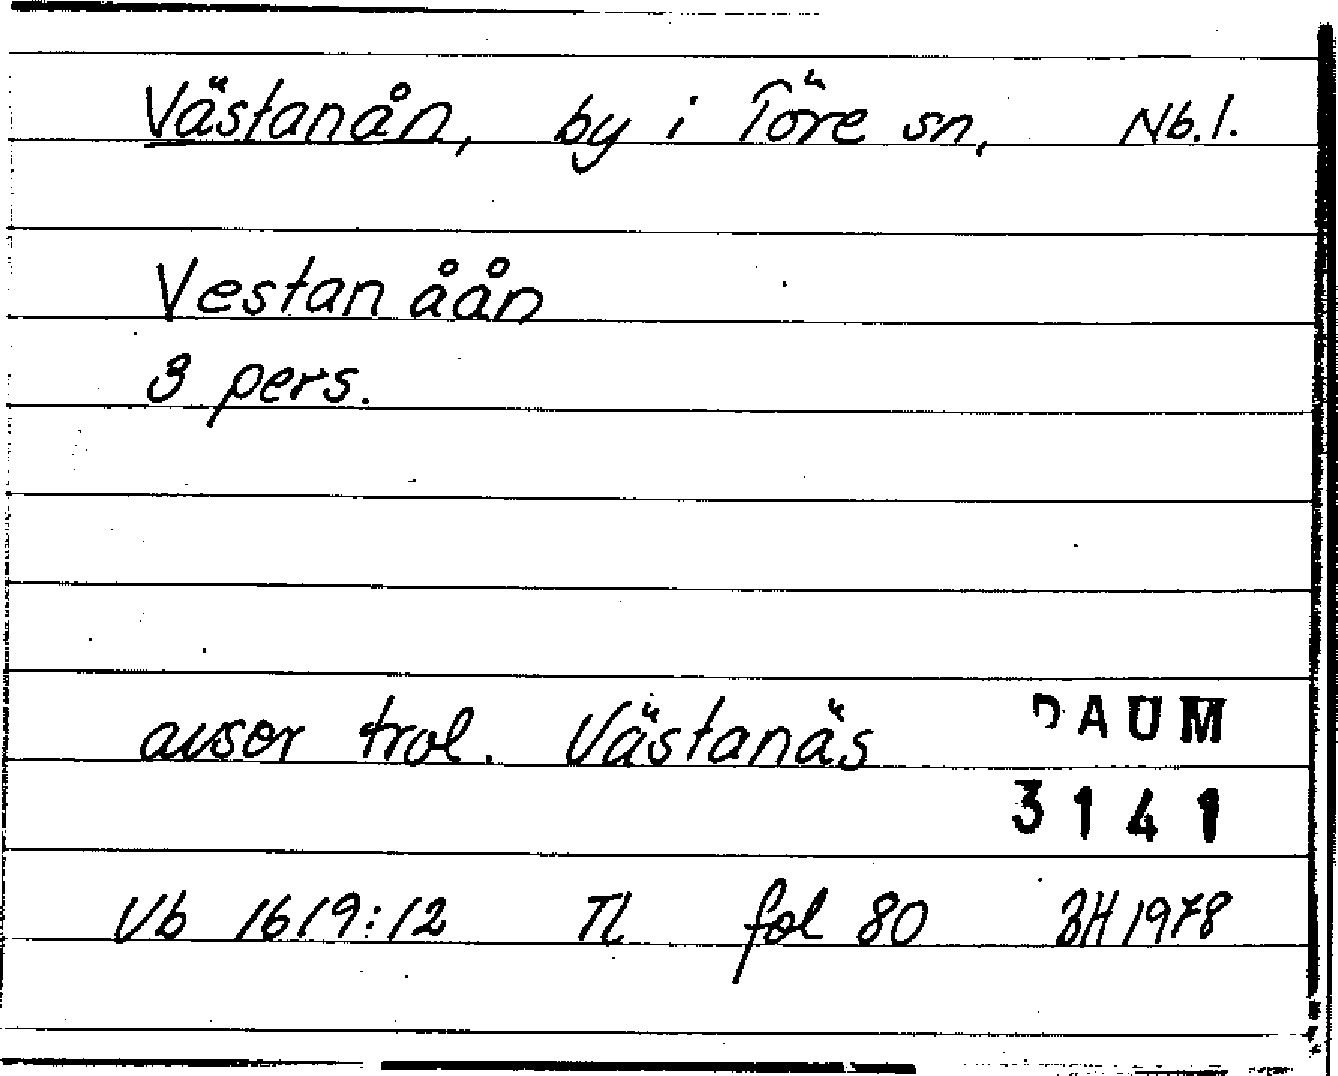 Västanån, by i Töre sn, Nb.l.
Vestan åån
3 pers.
avser trol. Västanäs
DAUM
3141
Vb 1619:12 TL fol 80 BH 1978